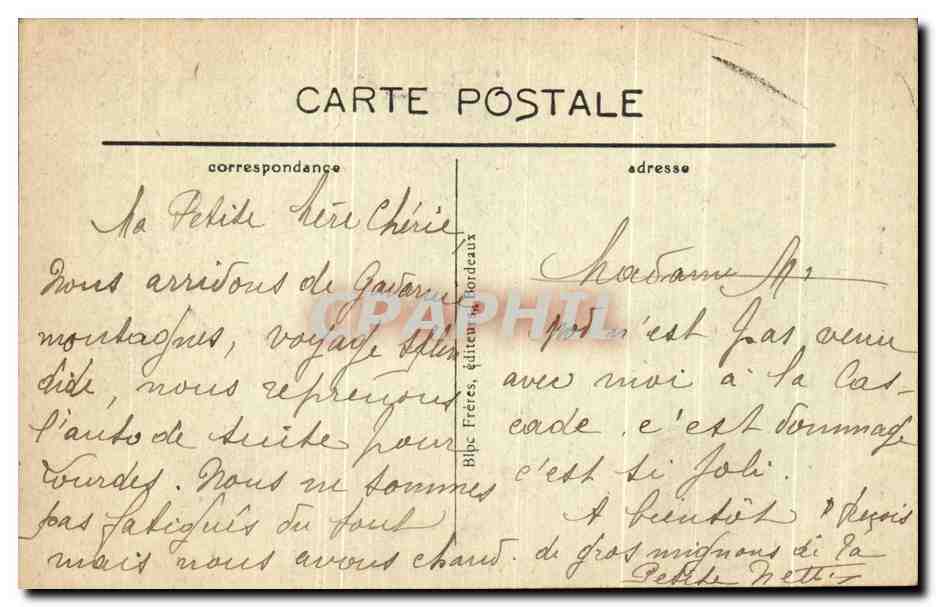 CARTE POSTALE
correspondance
adresse
Ma Petite Mère Chérie,
Nous arrivons de Gavarnie
montagnes, voyage splen
dide, nous reprenons
l'auto de suite pour
Lourdes. Nous ne sommes
pas fatigués du tout
mais nous avons chaud.
Bloc Frères, éditeurs, Bordeaux
CPAPHIL
Madame
n'est pas venu
avec moi à la Cas-
cade, c'est dommage
c'est si joli.
A bientôt reçois
de gros mignons de ta
Petite